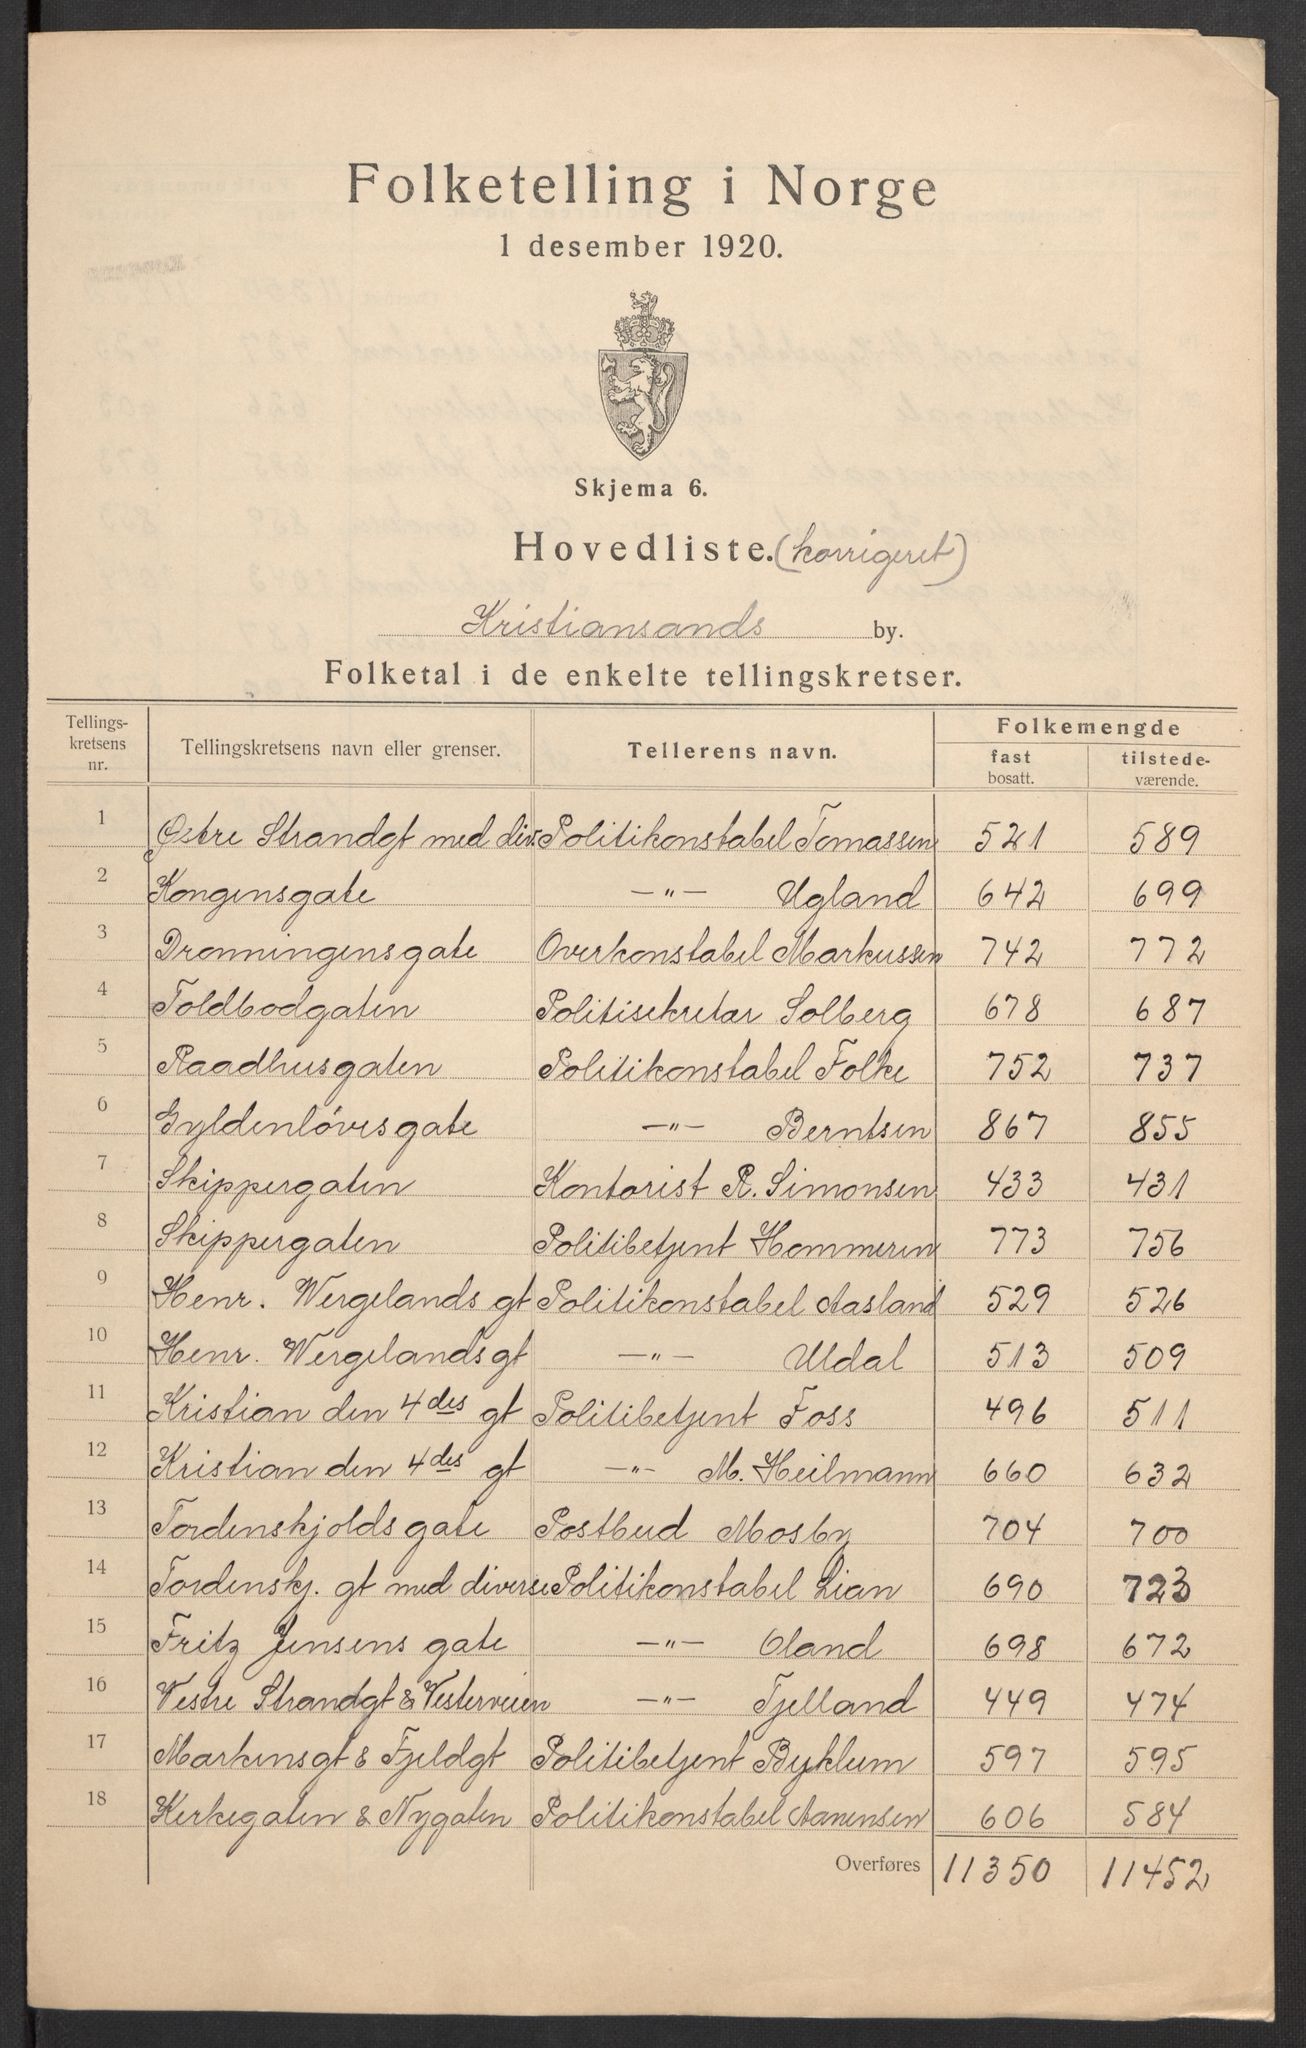 Folketelling i Norge
1 desember 1920.
Skjema 6.
Hovedliste. (korrigeret)
Kristiansands by.
Folketal i de enkelte tellingskretser.
Tellings-kretsens nr. Tellingskretsens navn eller grenser. Tellerens navn. Folkemengde
fast bosatt. tilstede-værende.
1 Østre Strandgt med div. Politikonstabel Tomassen 521 589
2 Kongensgate —"— Ugland 642 699
3 Dronningensgate Overkonstabel Markussen 742 772
4 Toldbodgaten Politisekretær Solberg 678 687
5 Raadhusgaten Politikonstabel Folke 752 737
6 Gyldenløvesgate —"— Berntsen 867 855
7 Skippergaten Kontorist R. Simonsen 433 431
8 Skippergaten Politibetjent Hommeren 773 756
9 Henr. Wergelands gt Politikonstabel Aasland 529 526
10 Henr. Wergelandsgt —"— Udal 513 509
11 Kristian den 4des gt Politibetjent Foss 496 511
12 Kristian den 4des gt —"— M. Heilmann 660 632
13 Tordenskjolds gate Postbud Mosby 704 700
14 Tordenskj. gt med diverse Politikonstabel Lian 690 723
15 Fritz Jensens gate —"— Oland 698 672
16 Vestre Strandgt & Vesterveien —"— Tjelland 449 474
17 Markensgt & Fjeldgt Politibetjent Byklum 597 595
18 Kerkegaten & Nygaten Politikonstabel Aanensen 606 584
Overføres 11350 11452